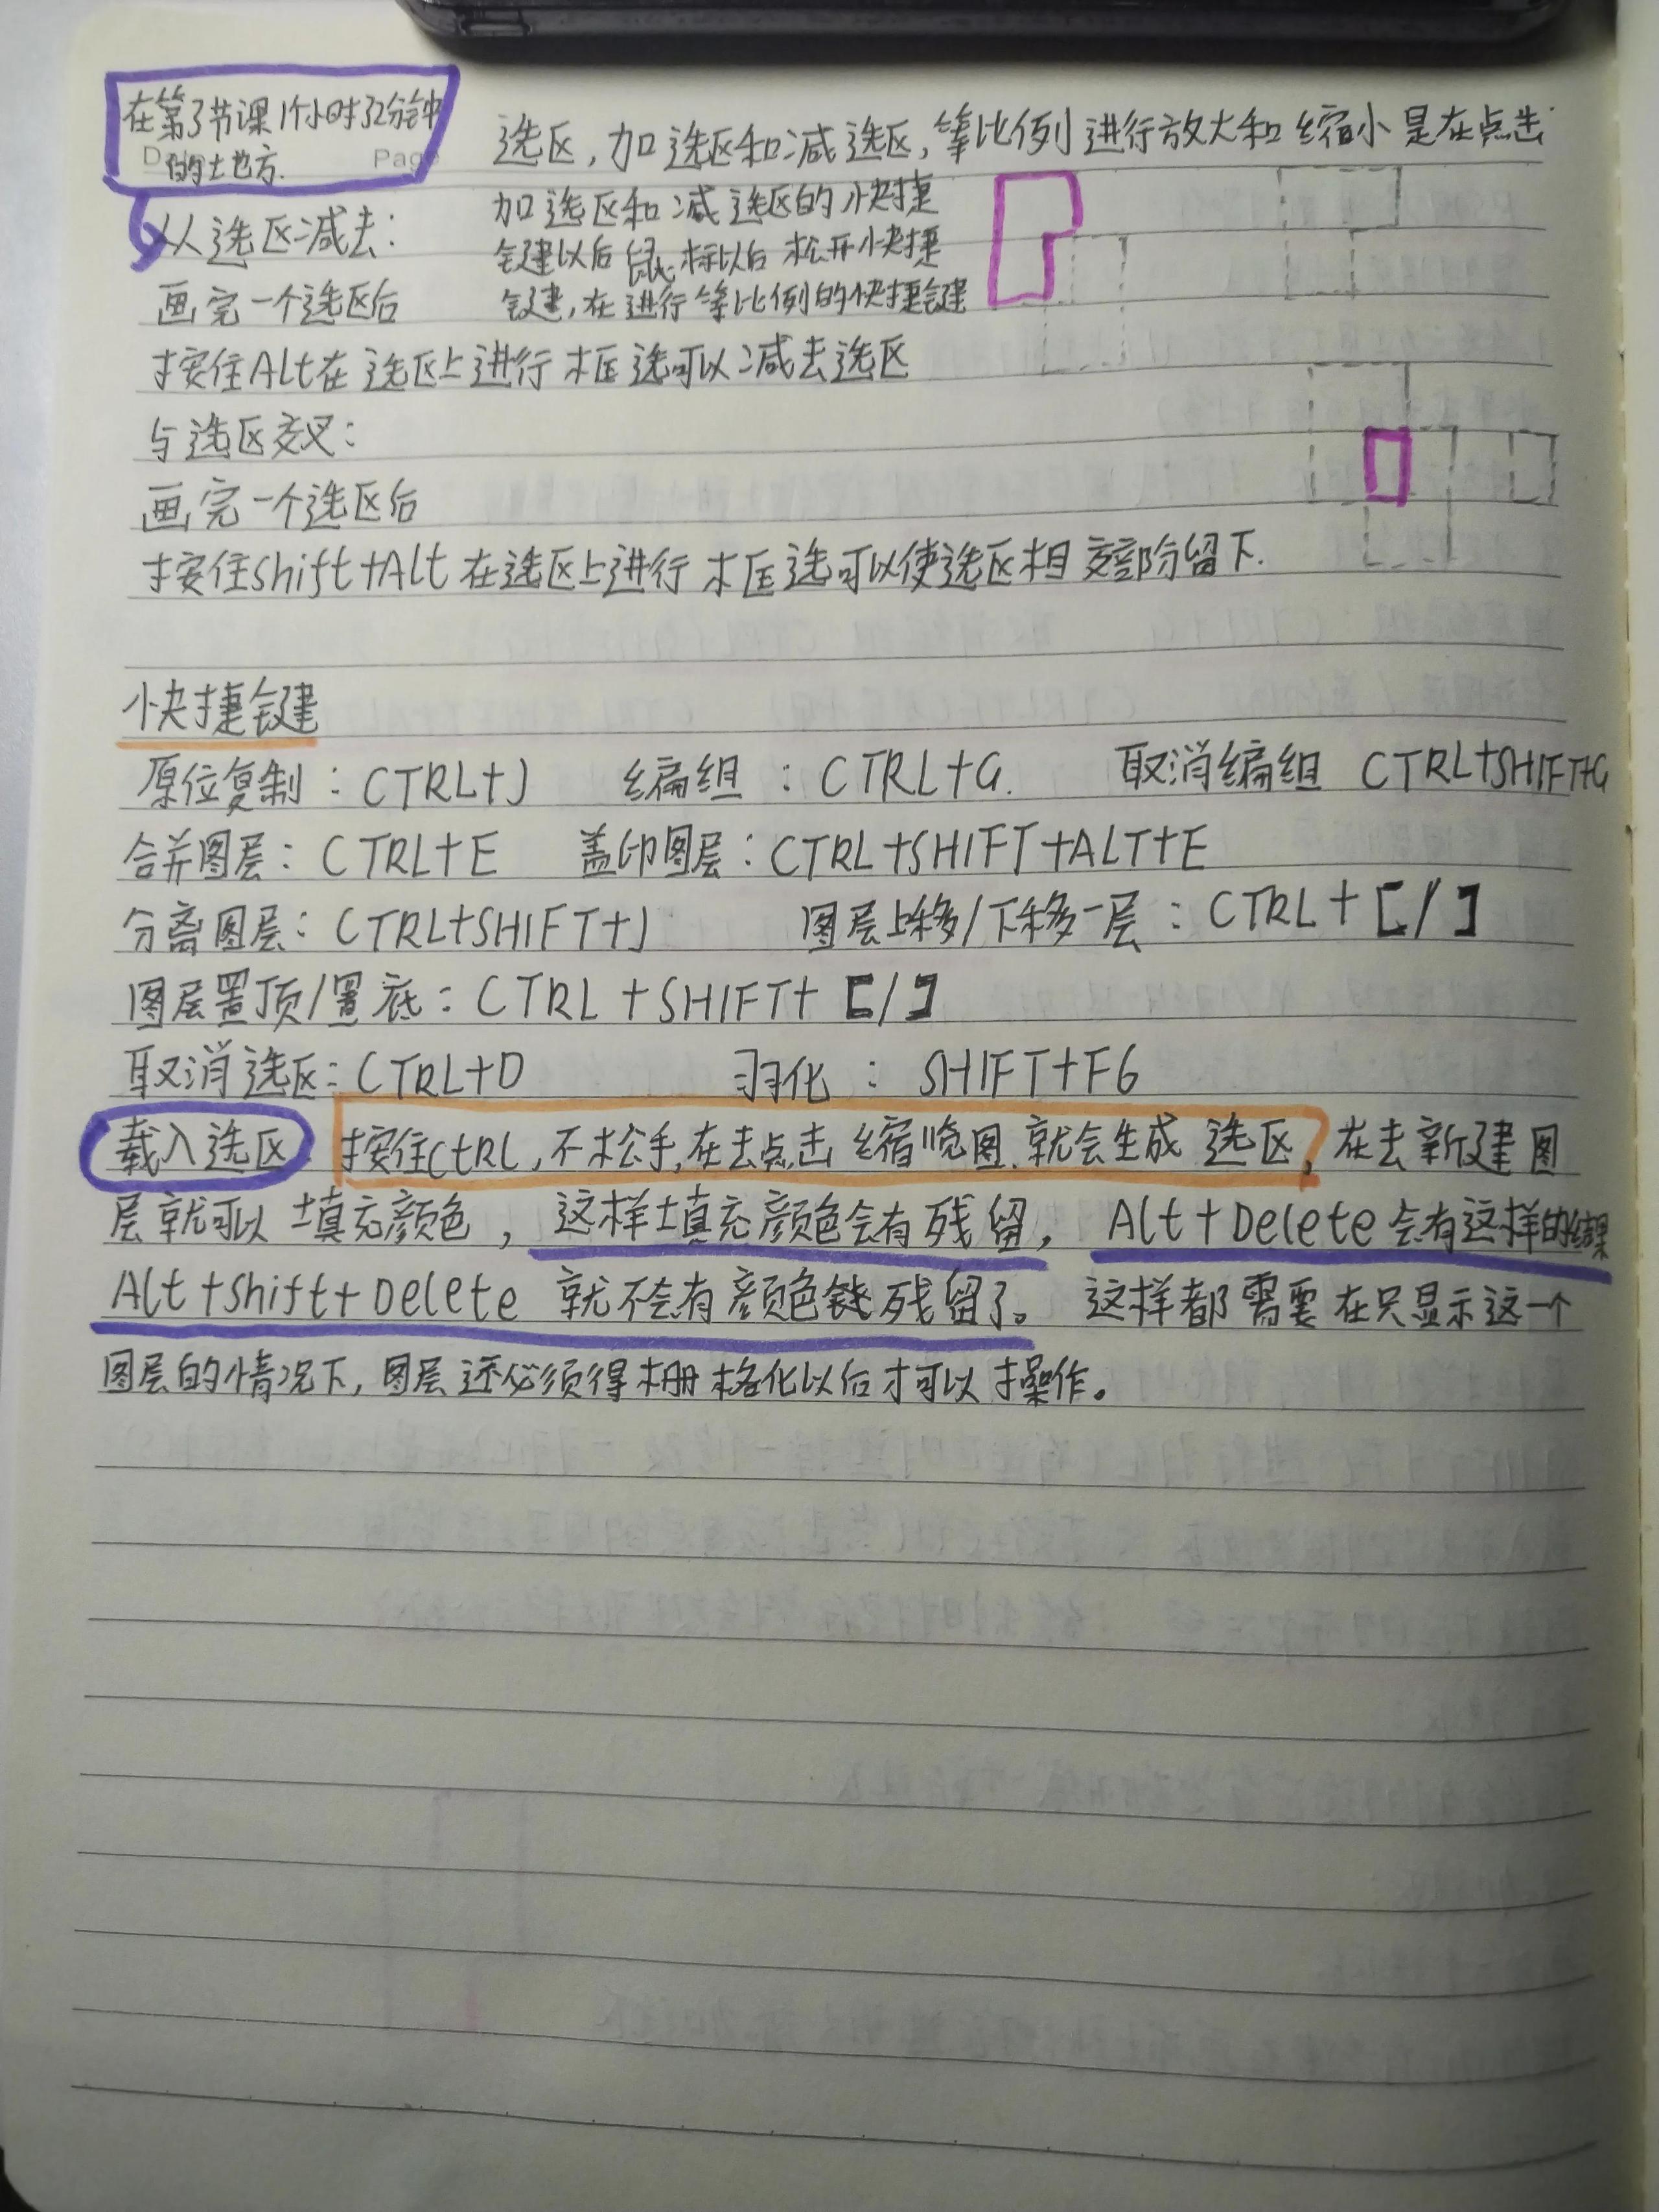 在第3节课1个小时32分钟
的土地方.
选区,加选区和减选区,等比例进行放大和缩小是在点击
加选区和减选区的快捷
键以后鼠标以后松开快捷
键,在进行等比例的快捷键
从选区减去:
画完一个选区后
按住Alt在选区上进行框选可以减去选区
与选区交叉:
画完一个选区后
按住shift+Alt在选区上进行框选可以使选区相交部分留下.
快捷键
原位复制:CTRL+J 编组:CTRL+G. 取消编组 CTRL+SHIFT+G
合并图层:CTRL+E 盖印图层:CTRL+SHIFT+ALT+E
分离图层:CTRL+SHIFT+J 图层上移/下移一层:CTRL+[/]
图层置顶/置底:CTRL+SHIFT+[/]
取消选区:CTRL+D 羽化:SHIFT+F6
载入选区 按住CtRL,不松手,在去点击缩览图.就会生成选区,在去新建图
层就可以填充颜色,这样填充颜色会有残留,Alt+Delete会有这样的结果
Alt+Shift+Delete 就不会有颜色残留了。这样都需要在只显示这一个
图层的情况下,图层还必须得栅格化以后才可以操作。